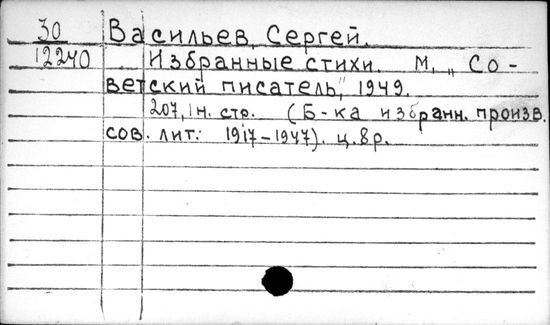 30 Васильев, Сергей.
12240 Избранные стихи. М, „Со-
ветский писатель", 1949.
207, 1 н. стр. (Б-ка избранн. произв.
сов. лит.: 1917-1947). ц. 8 р.